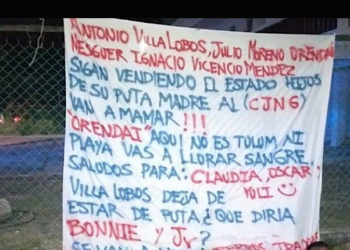 ANTONIO VILLALOBOS, JULIO MORENO ORENDAI
NESGUER IGNACIO VICENCIO MENDEZ
SIGAN VENDIENDO EL ESTADO HIJOS
DE SU PUTA MADRE AL (CJNG)
VAN A MAMAR!!!
"ORENDAI" AQUI NO ES TULUM NI
PLAYA VAS A LLORAR SANGRE.
SALUDOS PARA: CLAUDIA, OSCAR Y
VILLA LOBOS DEJA DE YULI
ESTAR DE PUTA ¿QUE DIRIA
BONNIE Y Jr?
SE VAN A